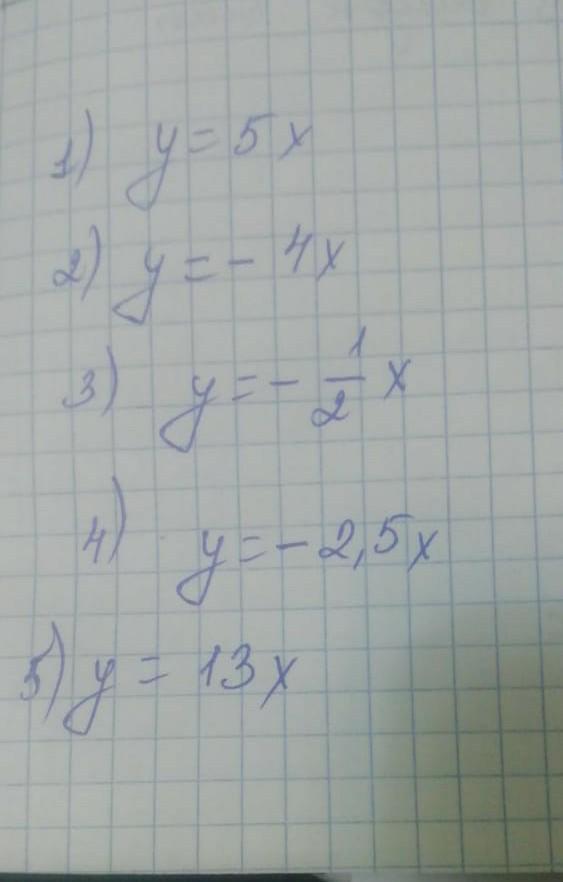 1) y = 5x
2) y = - 4x
3) y = - 1/2 x
4) y = - 2,5x
5) y = 13x